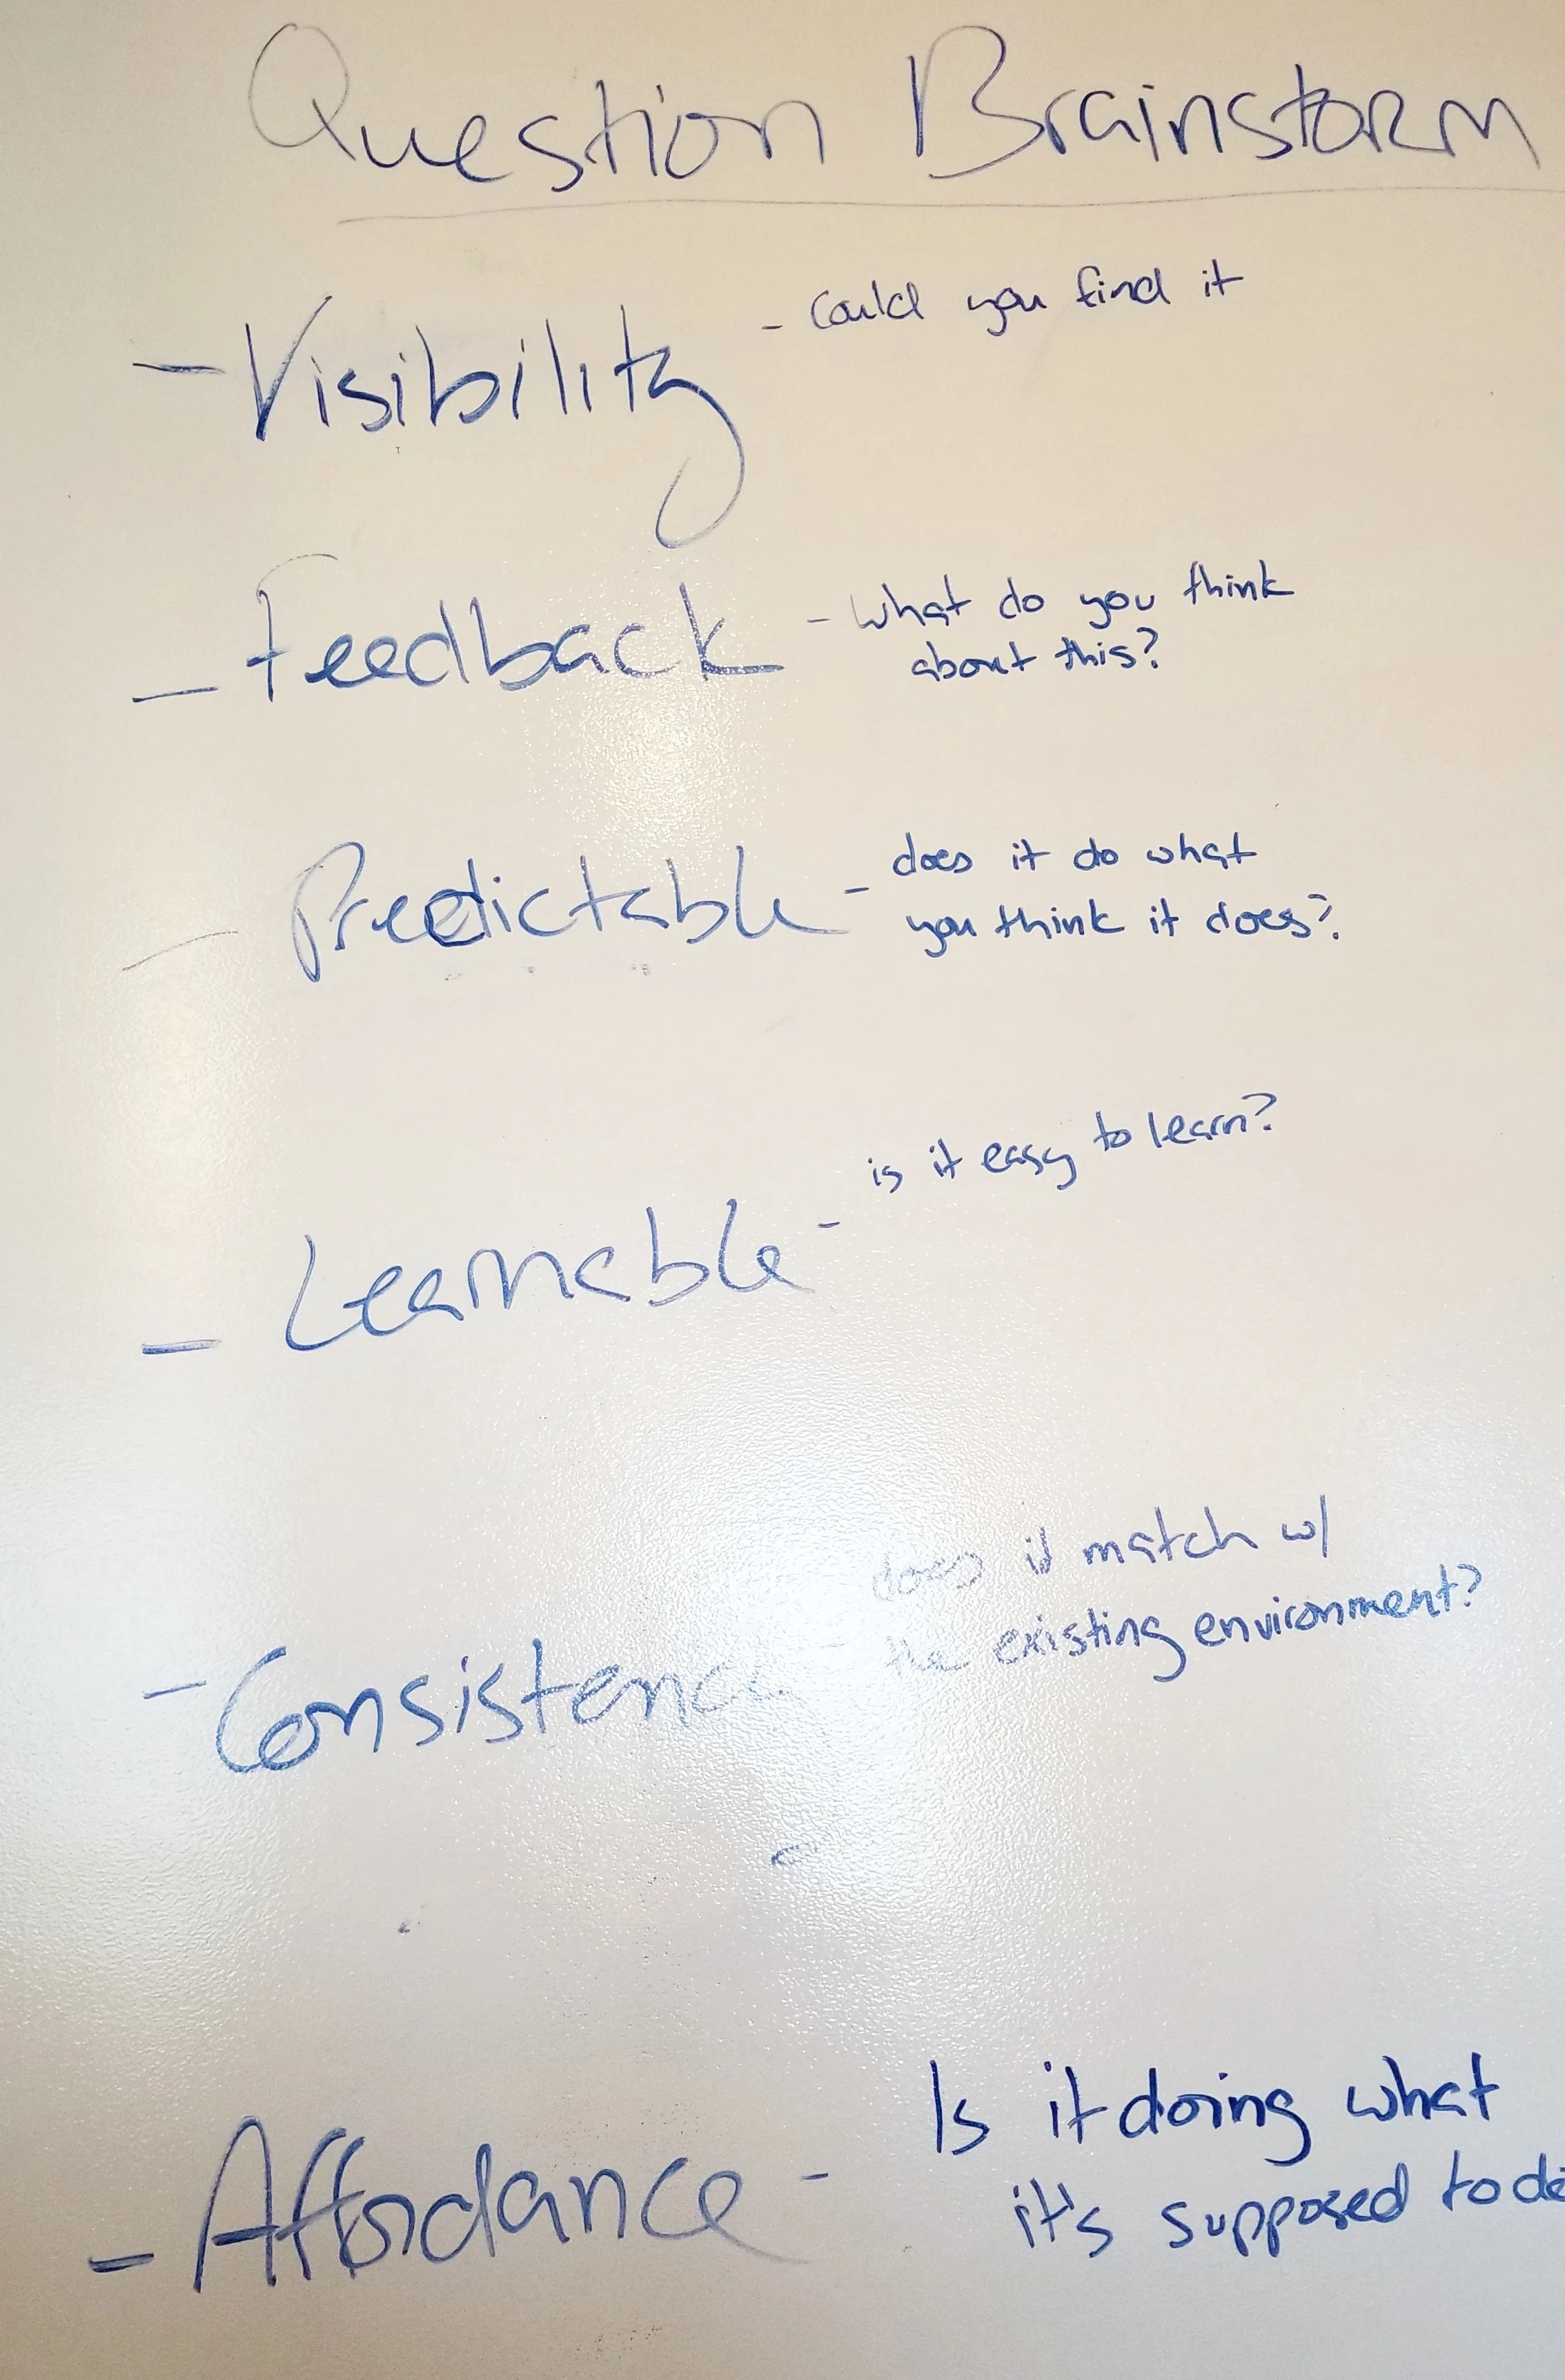 Question Brainstorm
- Visibility - could you find it
- Feedback - what do you think
about this?
- Predictable - does it do what
you think it does?
is it easy to learn?
- Learnable -
does it match w/
the existing environment?
- Consistence -
Is it doing what
- Affordance - it's supposed to do